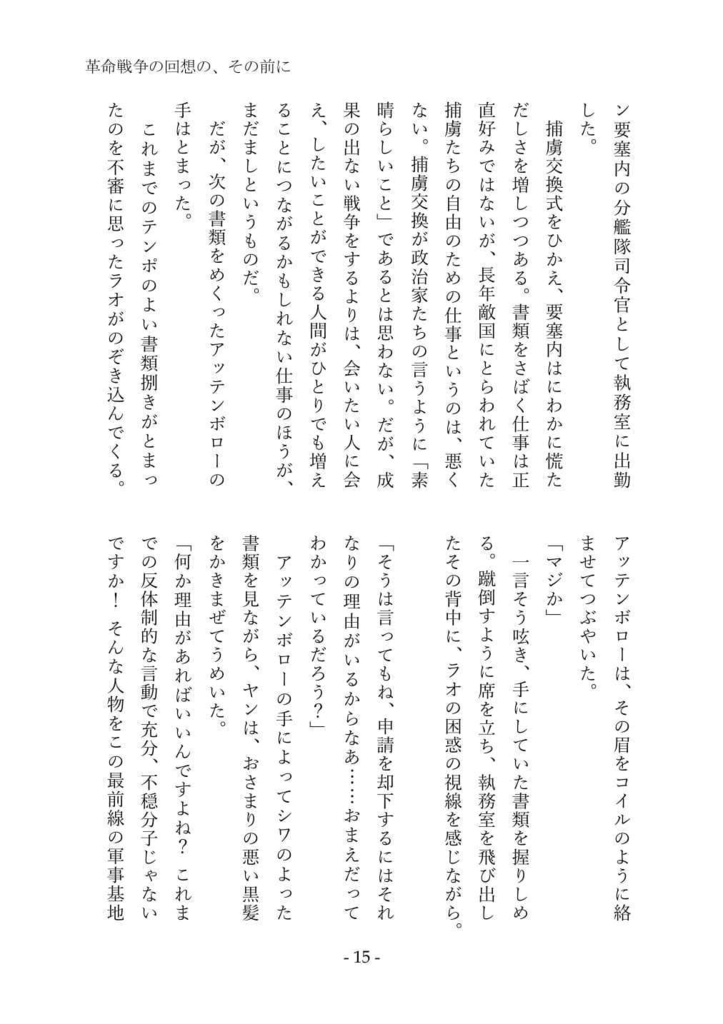 革命戦争の回想の、その前に
ン要塞内の分艦隊司令官として執務室に出勤
した。
　捕虜交換式をひかえ、要塞内はにわかに慌た
だしさを増しつつある。書類をさばく仕事は正
直好みではないが、長年敵国にとらわれていた
捕虜たちの自由のための仕事というのは、悪く
ない。捕虜交換が政治家たちの言うように「素
晴らしいこと」であるとは思わない。だが、成
果の出ない戦争をするよりは、会いたい人に会
え、したいことができる人間がひとりでも増え
ることにつながるかもしれない仕事のほうが、
まだましというものだ。
　だが、次の書類をめくったアッテンボローの
手はとまった。
　これまでのテンポのよい書類捌きがとまっ
たのを不審に思ったラオがのぞき込んでくる。
アッテンボローは、その眉をコイルのように絡
ませてつぶやいた。
「マジか」
　一言そう呟き、手にしていた書類を握りしめ
る。蹴倒すように席を立ち、執務室を飛び出し
たその背中に、ラオの困惑の視線を感じながら。
「そうは言ってもね、申請を却下するにはそれ
なりの理由がいるからなあ……おまえだって
わかっているだろう？」
　アッテンボローの手によってシワのよった
書類を見ながら、ヤンは、おさまりの悪い黒髪
をかきまぜてうめいた。
「何か理由があればいいんですよね？　これま
での反体制的な言動で充分、不穏分子じゃない
ですか！　そんな人物をこの最前線の軍事基地
- 15 -